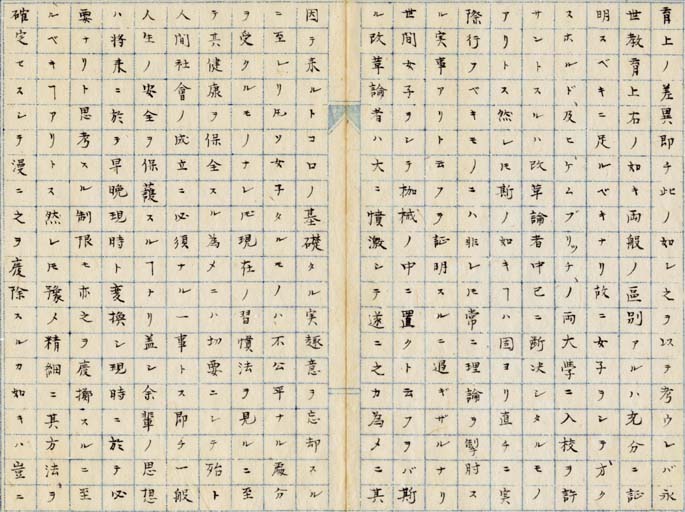 育上ノ差異即チ此ノ如シ之ヲ以テ考ウレバ永
世教育上右ノ如キ両般ノ區別アルハ充分ニ証
明スベキニ足ルベキナリ故ニ女子ヲシテオク
スホルド及ヒゲムブリッヂノ両大學ニ入校ヲ許
サントスルハ改革論者中已ニ断决シタルモノ
アリトス然レ𪜈斯ノ如キヿハ固ヨリ直チニ実
際行フベキモノニハ非レ𪜈常ニ理論ヲ掣肘ス
ル実事アリト云フヲ証明スルニ過ギザルナリ
世間女子ヲシテ枷械ノ中ニ置クト云フヲバ斯
ル改革論者ハ大ニ憤激シテ遂ニ之カ為メニ其
因テ来ルトコロノ基礎タル実趣意ヲ忘却スル
ニ至レリ凡ソ女子タルモノハ不公平ナル處分
ヲ受クルモノナレ𪜈現在ノ習慣法ヲ見ルニ至
テ其健康ヲ保全スル為メニハ切要ニシテ殆ト
人間社會ノ成立ニ必須ナル一事トス即チ一般
人生ノ安全ヲ保護スルヿトリ盖シ余輩ノ思想
ハ将来ニ於テ早晩現時ト変換シ現時ニ於テ必
要ナリト思考スル制限モ亦之ヲ廃擲スルニ至
ルベキヿアリトス然レ𪜈豫メ精細ニ其方法ヲ
確定セスシテ漫ニ之ヲ廢除スルカ如キハ豈ニ